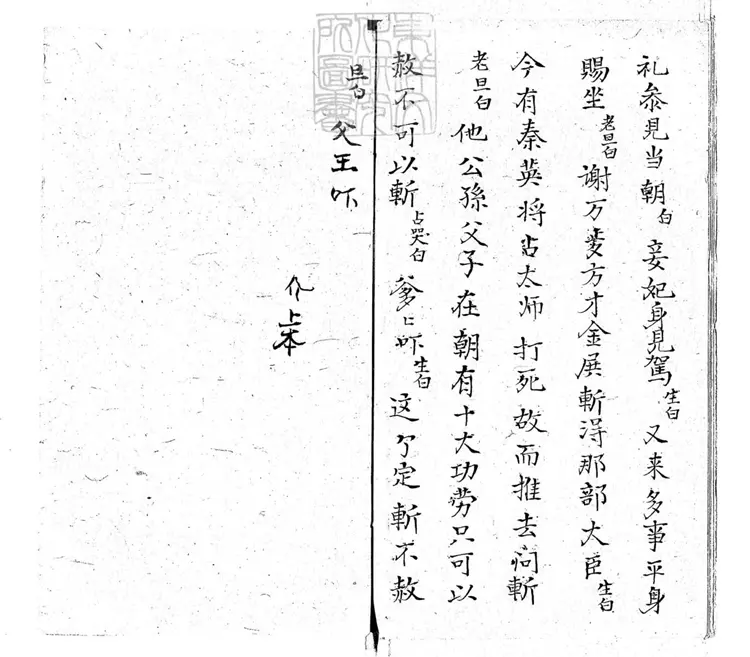 礼参見当朝白妾妃身見駕生白又来多事平身
賜坐老旦白謝万歲方才金展斬得那部大臣生白
今有秦英将詹太师打死故而推去问斬
老旦白他公孫父子在朝有十大功劳只可以
赦不可以斬占哭白爹匕吓生白这个定斬不赦
旦白父王吓
上本